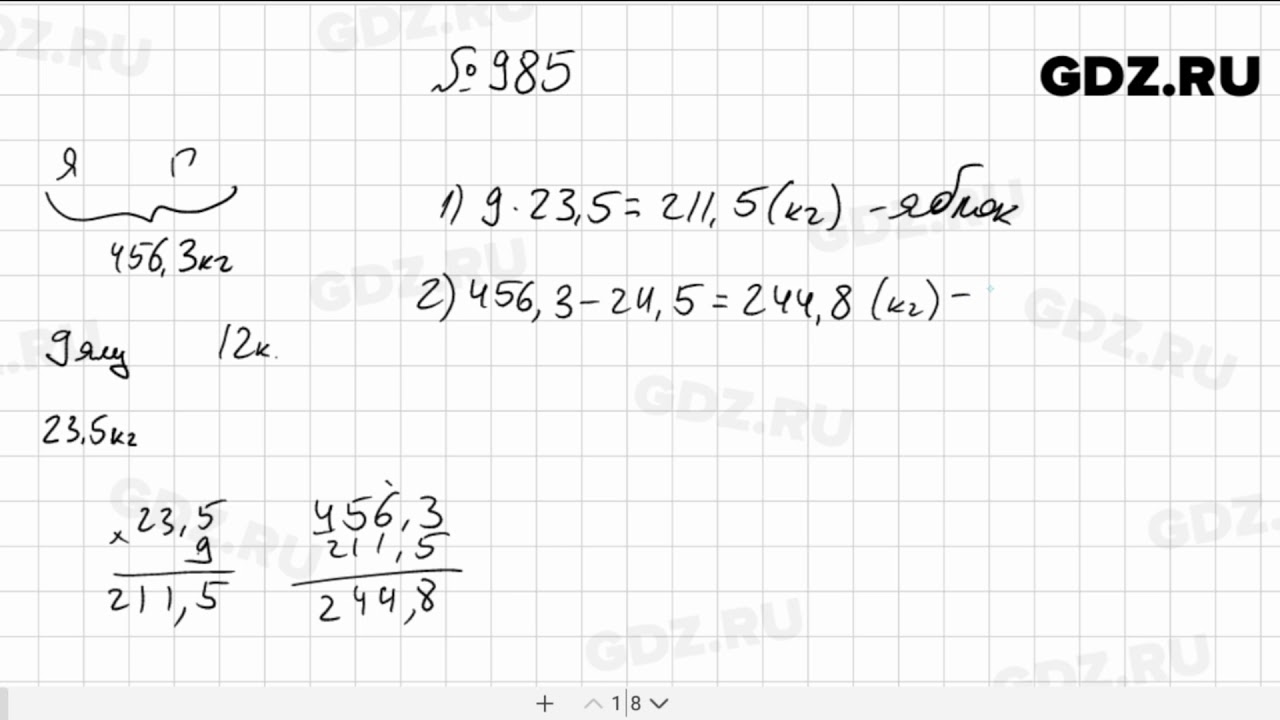 №985
GDZ.RU
Я Г
456,3кг
9 ящ 12к.
23,5кг
1) 9·23,5=211,5(кг) -яблок
2) 456,3-24,5=244,8 (кг) -
×23,5
9
211,5
456,3
211,5
244,8
+ 1|8
GDZ.RU
GDZ.RU
GDZ.RU
GDZ.RU
GDZ.RU
GDZ.RU
GDZ.RU
GDZ.RU
GDZ.RU
GDZ.RU
GDZ.RU